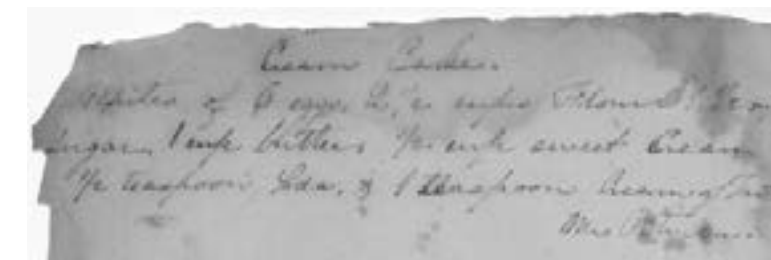 Cream Cake.
Whites of 6 eggs, 2 1/2 cups Flour
Sugar, 1 cup butter, 1/2 cup sweet Cream
1/2 teaspoon Soda, & 1 teaspoon Cream of
Mrs